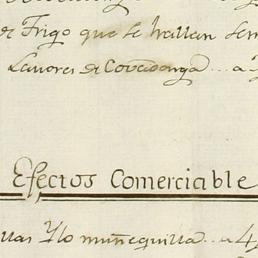 de Trigo que se hallan sem
Lavores de Covadonga ... a
Efectos Comerciable
Ylo muñequilla ... a 4